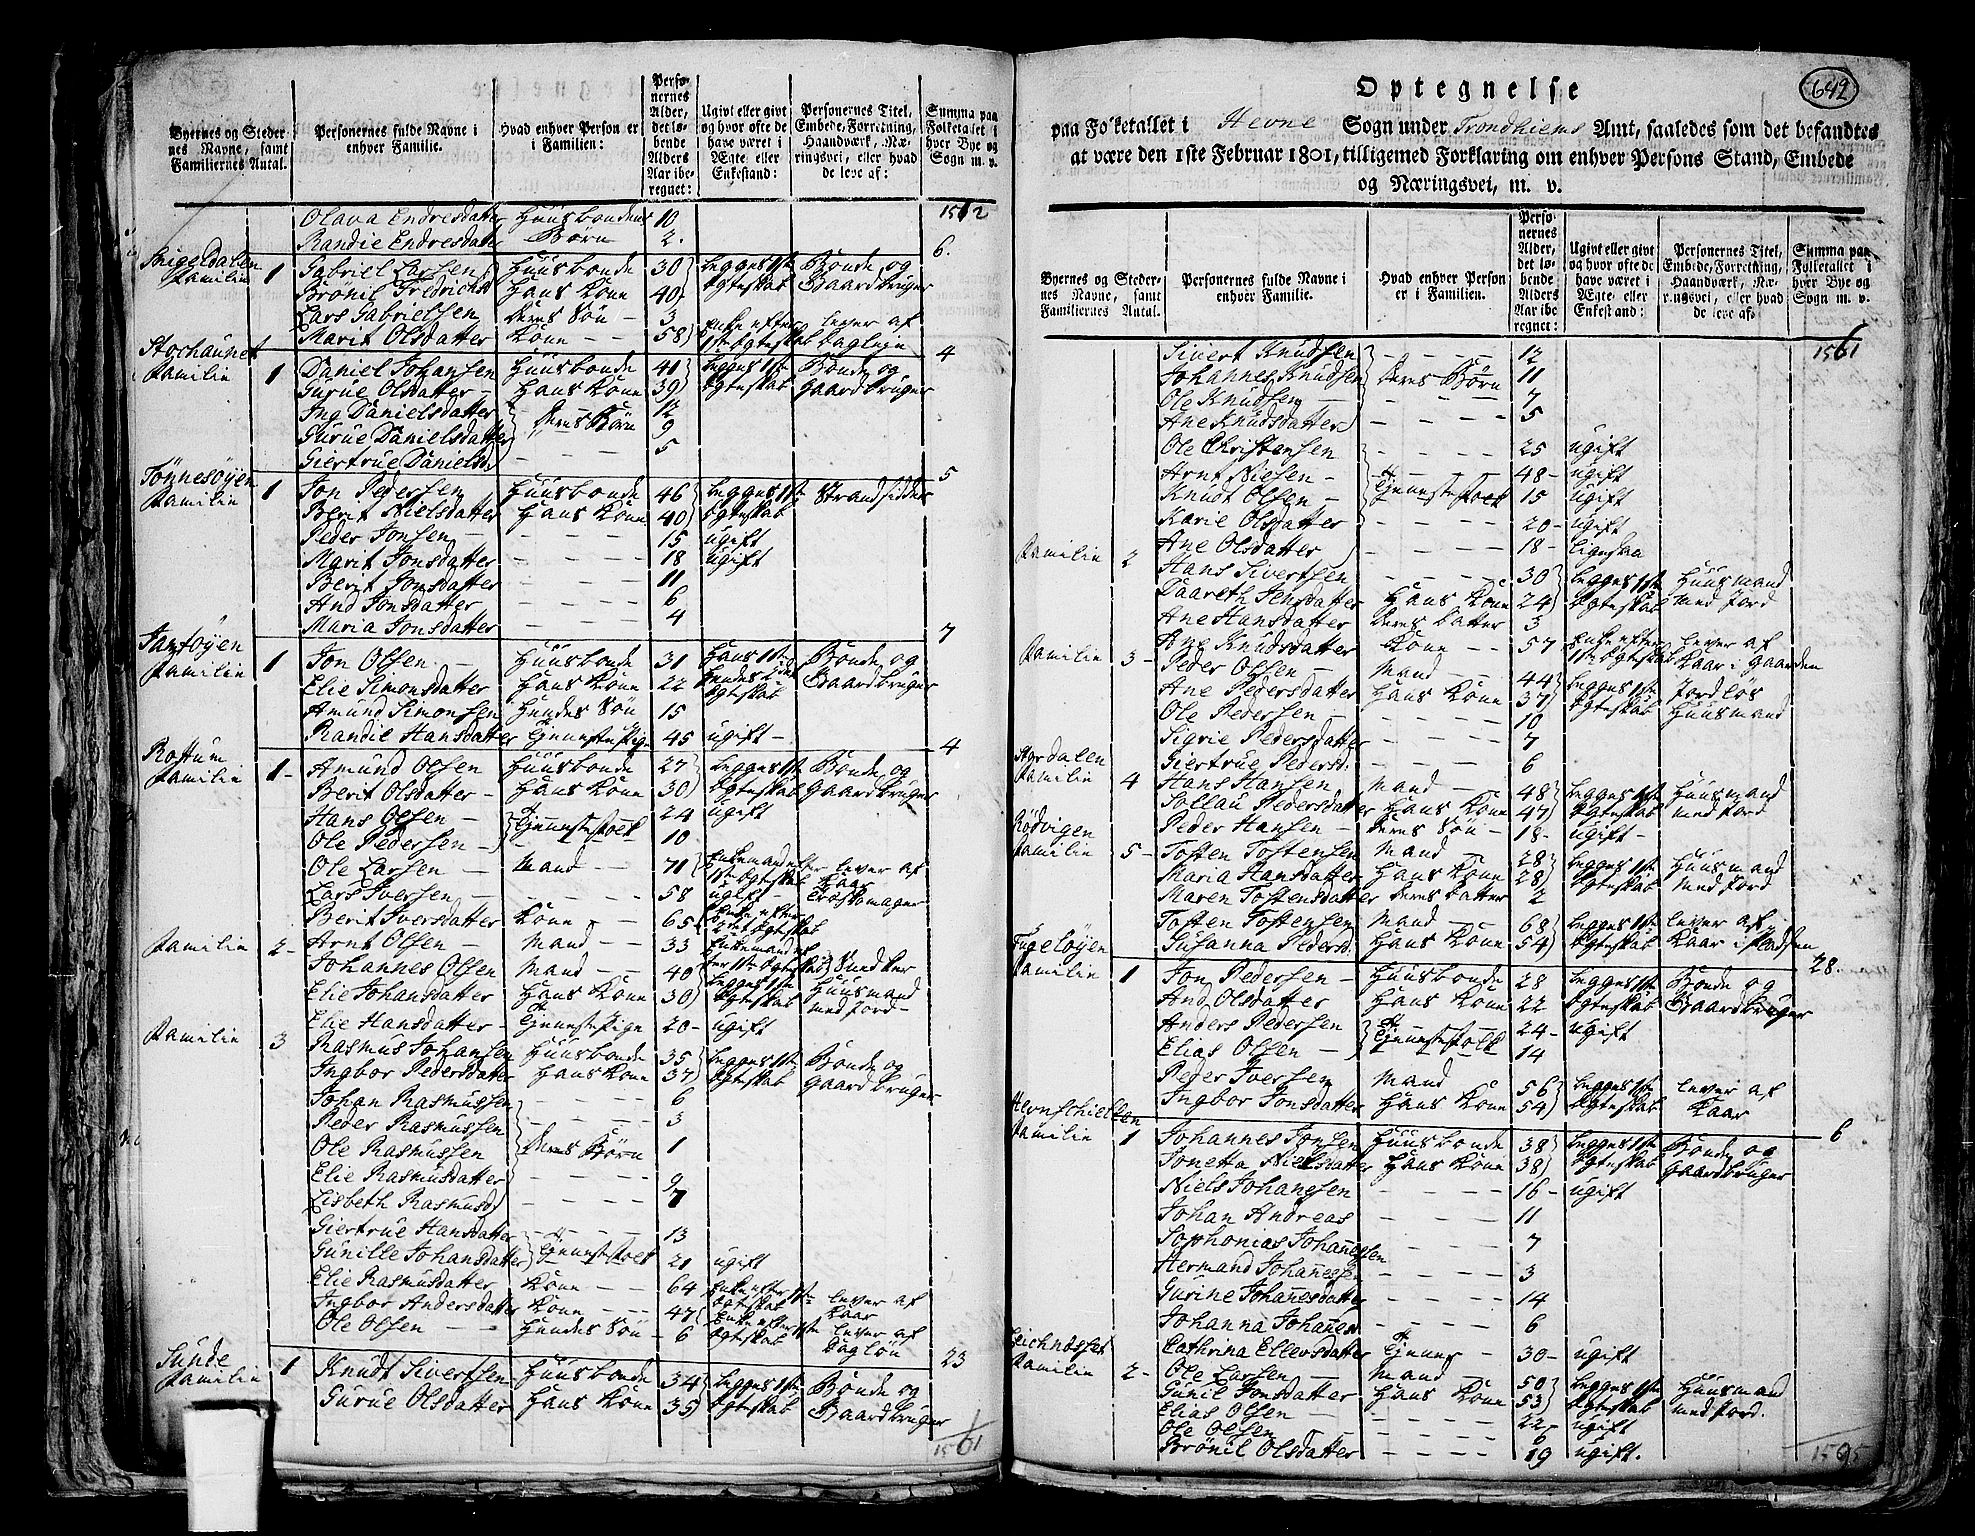 Byernes og Steder-
nes Navne, samt
Familiernes Antal.
Personernes fulde Navne i
enhver Familie.
Hvad enhver Person er
i Familien:
Perso-
nernes
Alder,
det lø-
bende
Alders
Aar ibe-
regnet:
Ugivt eller givt
og hvor ofte de
have været i
Ægte eller
Enkestand:
Personernes Titel,
Embede, Forretning,
Haandværk, Næ-
ringsvei, eller hvad
de leve af:
Summa paa
Folketallet i
hver Bye og
Sogn m. v.
1512
Olava Endresdatter Huusbondens 10
Randie Endresdatter Børn 2 6.
Familie 1 Gabriel Larsen Huusbonde 30 begges 1ste Bonde og
Brönil Fredrichsd Hans Kone 40 Ægteskab Gaardbruger
Lars Gabrielsen deres Søn 3
Marit Olsdatter Kone 58 Enke efter lever af
1ste Ægteskab Dagleje 4
Familie 1 Daniel Johansen Huusbonde 41 begges 1ste Bonde og
Gurue Olsdatter Hans Kone 39 Ægteskab Gaardbruger
Ing Danielsdatter 12
Gurue Danielsdatter deres Børn 9
Giertrue Danielsd. 5 5
Tönnesöyen
Familie 1 Jon Pedersen Huusbonde 46 begges 1ste Strandsidder
Berit Nielsdatter Hans Kone 40 Ægteskab
Peder Jonsen 15 ugift
Marit Jonsdatter 18 ugift
Berit Jonsdatter 11
And Jonsdatter 6
Maria Jonsdatter 4 7
Familie 1 Jon Olsen Huusbonde 31 Hans 1ste Bonde og
Elie Simonsdatter Hans Kone 22 Hendes 2det Gaardbruger
Ægteskab
Amund Simonsen Hendes Søn 15
Randie Hansdatter Tjenestepige 45 ugift 4
Rostum
Familie 1 Amund Olsen Huusbonde 27 begges 1ste Bonde og
Berit Olsdatter Hans Kone 30 Ægteskab Gaardbruger
Hans Olsen Tjenestefolk 24 ugift
Ole Pedersen 10
Ole Larsen Mand 71 Enkemand efter lever af
1ste Ægteskab Kaar
Lars Iversen 58 ugift
Berit Iversdatter Kone 65 Enke efter
Familie 2 Arnt Olsen Mand 33 Enkemand ef
ter 1ste Ægteskab
Johannes Olsen Mand 40 begges 1ste Huusmand
Elie Johansdatter Hans Kone 30 Ægteskab med Jord
Elie Hansdatter Tjenestepige 20 ugift
Familie 3 Rasmus Johansen Huusbonde 35 begges 1ste Bonde og
Ingbor Pedersdatter Hans Kone 37 Ægteskab Gaardbruger
Johan Rasmussen 6
Peder Rasmussen 3
Ole Rasmussen deres Børn 1
Elie Rasmusdatter 9
Lisbeth Rasmusd 7
Giertrue Hansdatter 13
Gunille Johansdatter Tjenestefolk 21 ugift
Elie Rasmusdatter Kone 64 Enke efter 1ste lever af
Ægteskab Kaar
Ingbor Andersdatter Kone 47 Enke efter 1ste lever af
Ole Olsen Hendes Søn 6 Ægteskab Dagløn 23
Sunde
Familie 1 Knudt Sivertsen Huusbonde 34 begges 1ste Bonde og
Gurue Olsdatter Hans Kone 35 Ægteskab Gaardbruger
1561
642
Optegnelse
paa Folketallet i Hevne Sogn under Trondhiems Amt, saaledes som det befandtes
at være den 1ste Februar 1801, tilligemed Forklaring om enhver Persons Stand, Embede
og Næringsvei, m. v.
Byernes og Steder-
nes Navne, samt
Familiernes Antal.
Personernes fulde Navne i
enhver Familie.
Hvad enhver Person
er i Familien.
Perso-
nernes
Alder,
det lø-
bende
Alders
Aar ibe-
regnet:
Ugivt eller givt
og hvor ofte de
have været i
Ægte eller
Enkestand:
Personernes Titel,
Embede, Forretning,
Haandværk, Næ-
ringsvei, eller hvad
de leve af:
Summa paa
Folketallet i
hver Bye og
Sogn m. v.
1561
Sivert Knudsen 12
Johannes Knudsen deres Børn 11
Ole Knudsen 7
Ane Knudsdatter 5
Ole Christensen 25 ugift
Arnt Nielsen 48 ugift
Knudt Olsen Tjenestefolk 15 ugift
Karie Olsdatter 20 ugift
Ane Olsdatter 18 ligesaa
Familie 2 Hans Sivertsen 30 begges 1ste Huusmand
Taareth Jensdatter Hans Kone 24 Ægteskab med Jord
Ane Hansdatter deres Datter 3
Ane Knudsdatter Kone 57 Enke efter lever af
1ste Ægteskab Kaar i Gaarden
Familie 3 Peder Olsen Mand 44 begges 1ste Jordløs
Ane Pedersdatter Hans Kone 37 Ægteskab Huusmand
Ole Pedersen 10
Sigrie Pedersdatter 7
Giertrue Pedersd. 6
Styrdalen
Familie 4 Hans Hansen Mand 48 begges 1ste Huusmand
Sollau Pedersdatter Hans Kone 47 Ægteskab med Jord
Peder Hansen deres Søn 18 ugift
Rödvigen
Familie 5 Tosten Tostensen Mand 28 begges 1ste Huusmand
Maria Hansdatter Hans Kone 28 Ægteskab med Jord
Maren Tostensdatter deres Datter 2
Tosten Tostensen Mand 68 begges 1ste lever af
Susanna Pedersd. Hans Kone 54 Ægteskab Kaar i Pladsen 28.
Fugelöyen
Familie 1 Jon Pedersen Huusbonde 28 begges 1ste Bonde og
And Olsdatter Hans Kone 22 Ægteskab Gaardbruger
Anders Pedersen Tjenestefolk 24 ugift
Elias Olsen 14
Peder Iversen Mand 56 begges 1ste lever af
Ingbor Jonsdatter Hans Kone 54 Ægteskab Kaar 6
Familie 1 Johannes Jonsen Huusbonde 38 begges 1ste Bonde og
Jonetta Nielsdatter Hans Kone 38 Ægteskab Gaardbruger
Niels Johansen 16 ugift
Johan Andreas 11
Sophonias Johannesen 7
Hermand Johannessen 3
Gurine Johannesdatter 14
Johanna Johannesd 6
Cathrina Ellevsdatter Tjener 30 ugift
Familie 2 Ole Larsen Mand 50 begges 1ste Huusmand
Gunil Jonsdatter Hans Kone 53 Ægteskab med Jord.
Elias Olsen 22 ugift
Ole Olsen ugift
Brönil Olsdatter 19 ugift.